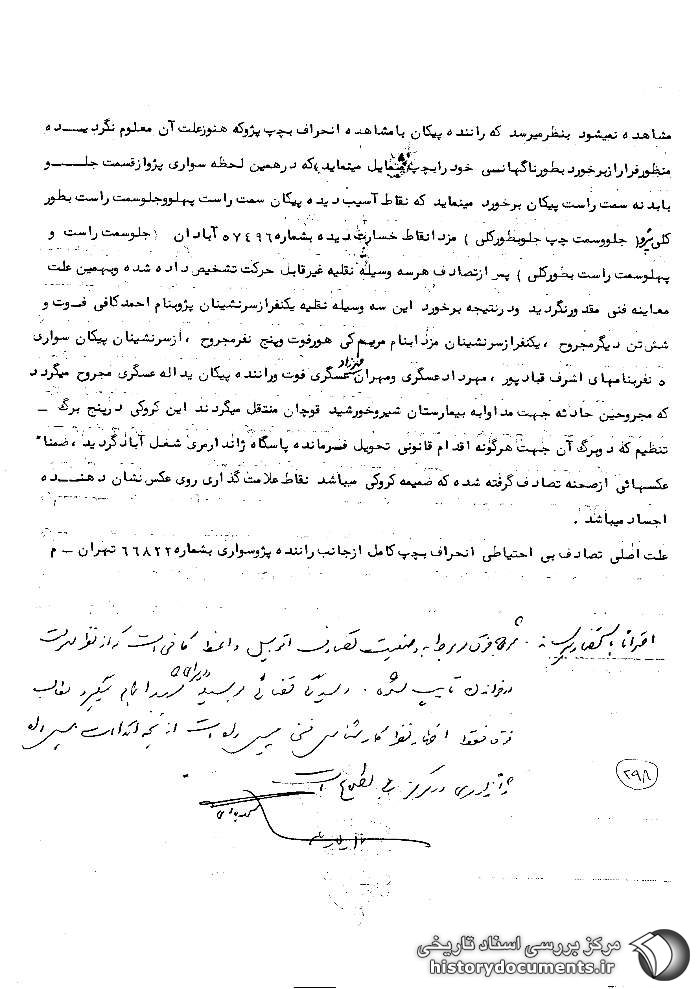 مشاهده نمیشود بنظرمیرسد که راننده پیکان بامشاهده انحراف بچپ پژوکه هنوزعلت آن معلوم نگردیـــده
منظورفرارازبرخورد بطورناگهانسی خودرابچپ متمایل مینماید، که درهمین لحظه سواری پژوازقسمت جلـــو
بابدنه سمت راست پیکان برخورد مینماید که نقاط آسیب دیده پیکان سمت راست پهلووجلوسمت راست بطور
کلی پژو( جلووسمت چپ جلوبطورکلی ) مزدانقاط خسارت دیده بشماره ۵۷۴۹۶ آبادان (جلوسمت راست و
پهلوسمت راست بطورکلی ) پس ازتصادف هرسه وسیله نقلیه غیرقابل حرکت تشخیص داده شده وبهمین علت
معاینه فنی مقدورنگردید ودرنتیجه برخورد این سه وسیله نقلیه یکنفرازسرنشینان پژوبنام احمدکافی فـوت و
شش تن دیگرمجروح ، یکنفرازسرنشینان مزدابنام مریم کی هورفوت وپنج نفرمجروح ، ازسرنشینان پیکان سواری
۵ نفربنامهای اشرف قبادپور ، مهردادعسگری ومهران عسگری فوت وراننده پیکان یداله عسگری مجروح میگردد
که مجروحین حادثه جهت مداوابه بیمارستان شیروخورشید قوچان منتقل میگردند این کروکی درپنج برگ ــ
تنظیم که دوبرگ آن جهت هرگونه اقدام قانونی تحویل فـرمانده پاسگاه ژاندارمری شغل آبادگردید ، ضمنا"
عکسهائی ازصحنه تصادف گرفته شده که ضمیمه کروکی میباشد نقاط علامت گذاری روی عکس نشان دهنـــده
اجساد میباشد .
علت اصلی تصادف بی احتیاطی انحراف بچپ کامل ازجانب راننده پژوسواری بشماره ۶۶۸۲۲ تهران ـ م
احتراما باستحضار میرساند . شرح فوق مربوط به وضعیت تصادف اتومبیل واعظ کافی است که از نظر سهولت
در خواندن تایپ شده .
فوق فقط اظهارنظر کارشناس فنی پلیس راه است از نتیجه اقدامات پلیس راه
ژاندارمری در مرکز بی اطلاع است
۲۹۸
مرکز بررسی اسناد تاریخی
historydocuments.ir